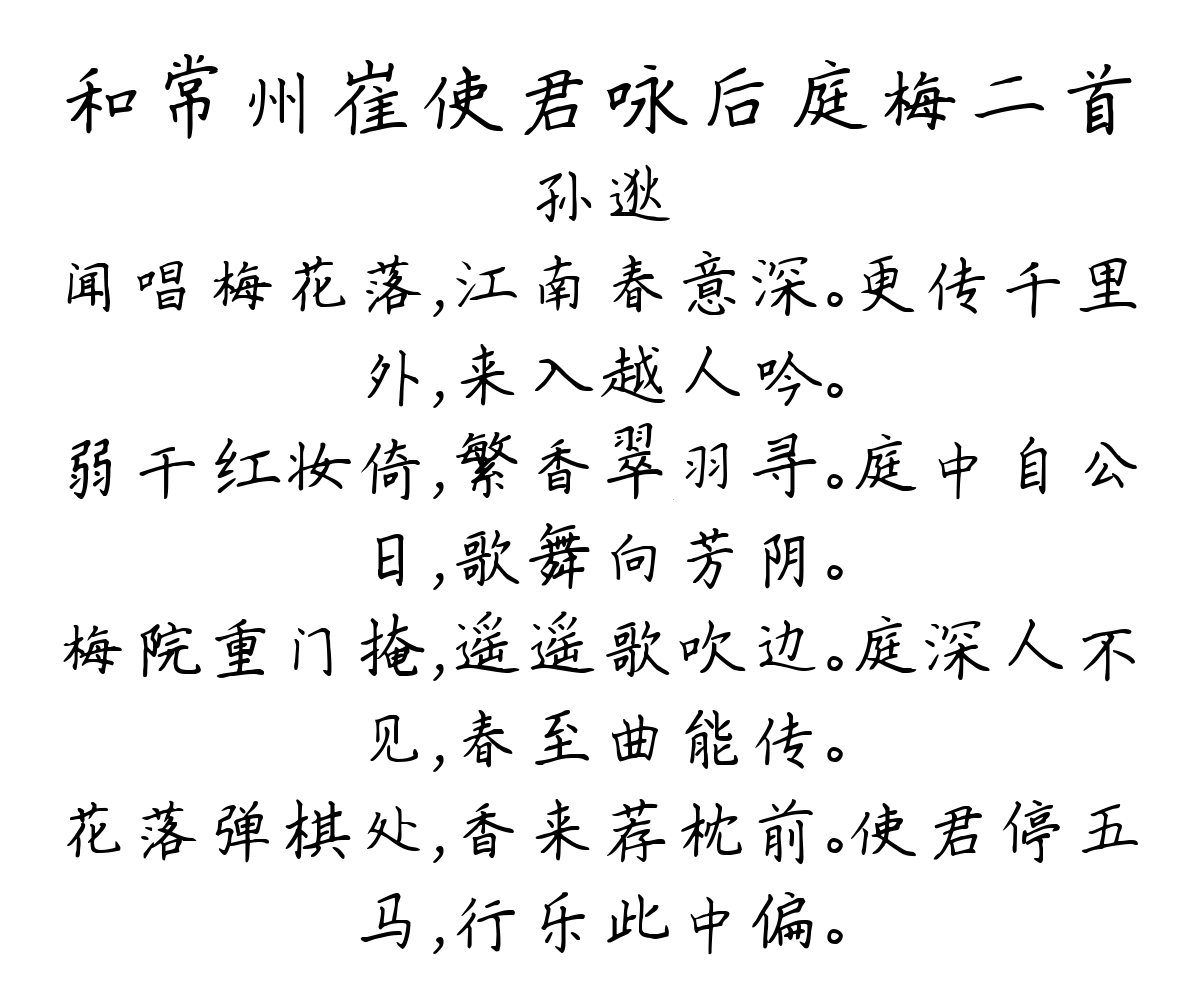 和常州崔使君咏后庭梅二首
孙逖
闻唱梅花落,江南春意深。更传千里
外,来入越人吟。
弱干红妆倚,繁香翠羽寻。庭中自公
日,歌舞向芳阴。
梅院重门掩,遥遥歌吹边。庭深人不
见,春至曲能传。
花落弹棋处,香来荐枕前。使君停五
马,行乐此中偏。